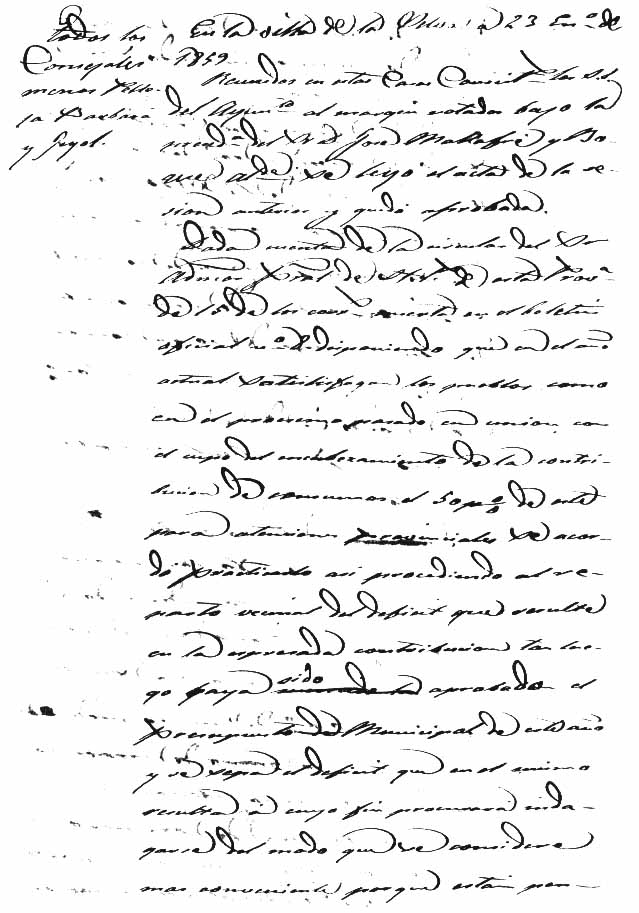 todos los
Concejales
menos
ja Barbara
y
En la villa de la a 23 En.o de
1859
Reunidos en estas Casas Consist.s los S.S.
del Ayun.to al margen notados bajo la
del D.n José y Bo-
Alde se leyó el acta de la se-
sion anterior y quedó aprobada.
Dada cuenta de la circular del Sr
Admor de de esta Prov.a
de 15 de los corr.s inserta en el boletin
oficial n.o 8 disponiendo que en el año
actual satisfagan los pueblos como
en el procsimo pasado en union con
el cupo del encabezamiento de la contri-
bucion de consumos el 50 p% de este
para atenciones provinciales se acor-
dó practicarlo asi procediendo al re-
parto vecinal del deficit que resulte
en la espresada contribucion tan lue-
go haya sido aprobado el
presupuesto Municipal de este año
y se sepa el deficit que en el mismo
resulta a cuyo fin procurará inda-
garse del modo que se considere
mas conveniente porque están pen-